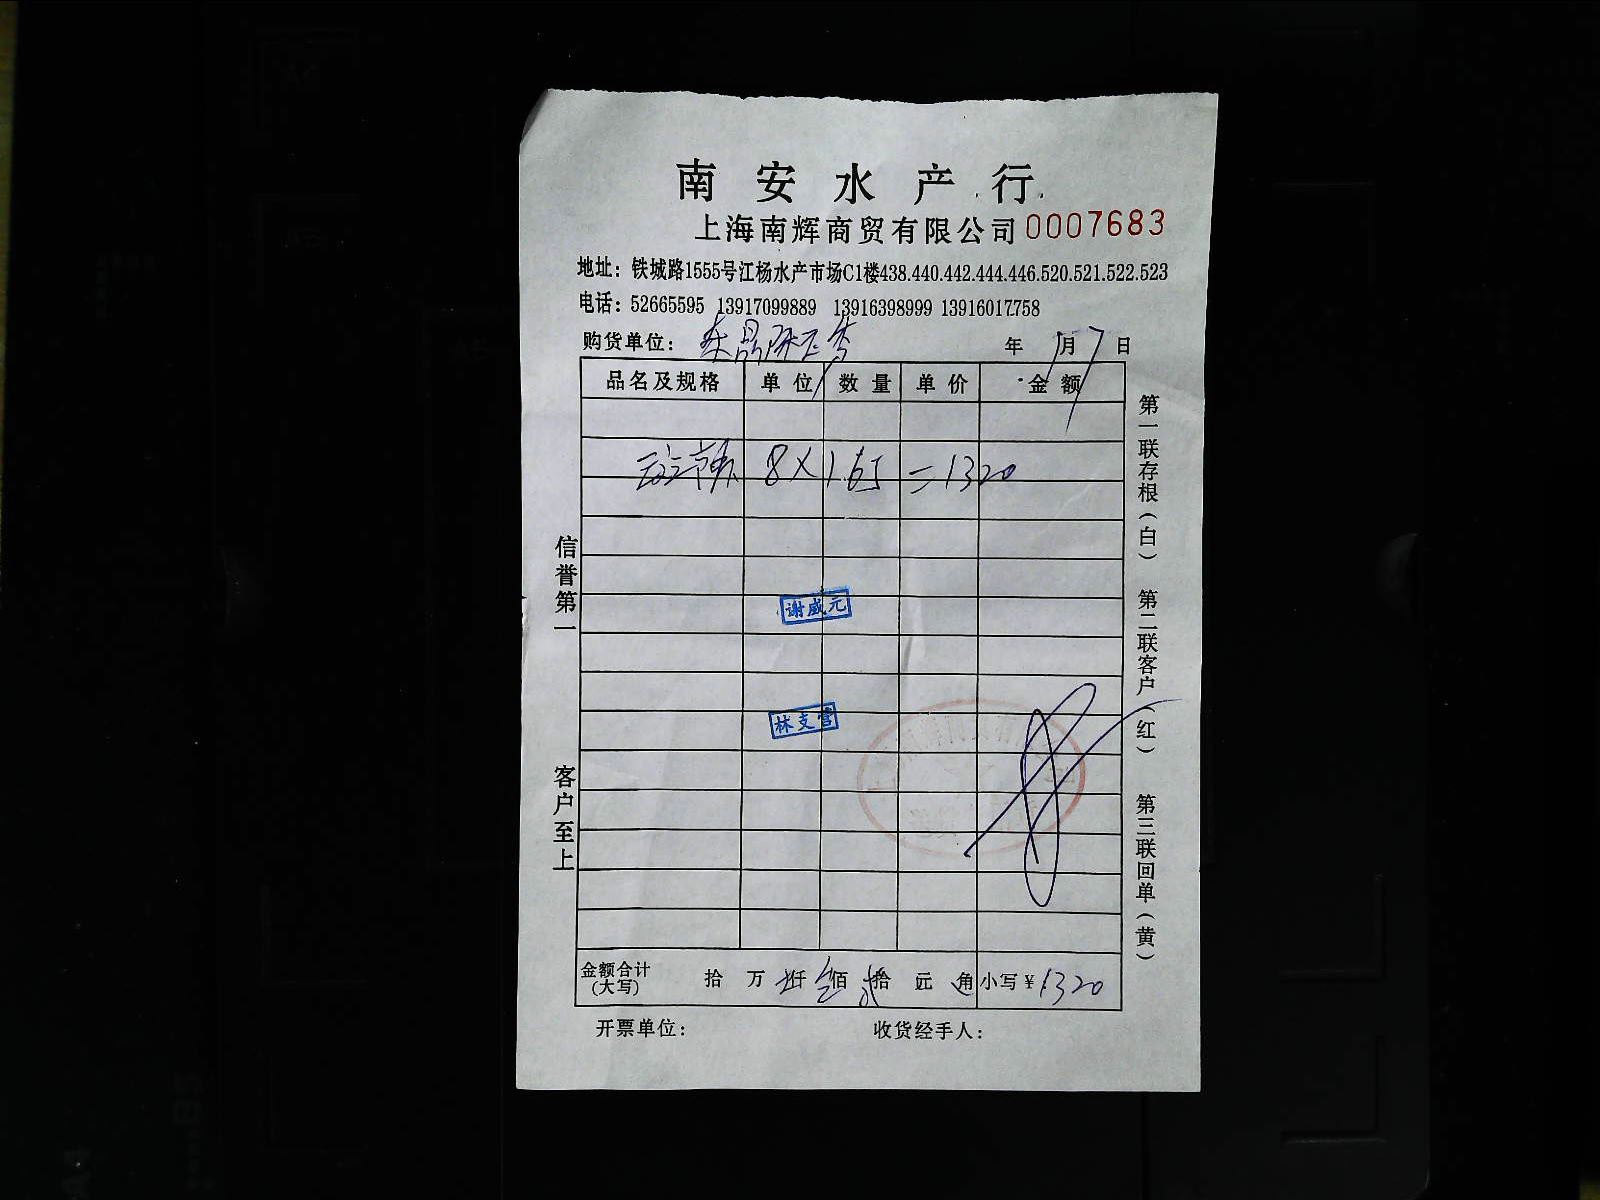 南安水产行
上海南辉商贸有限公司 0007683
地址：铁城路1555号江杨水产市场C1楼438.440.442.444.446.520.521.522.523
电话：52665595 13917099889 13916398999 13916017758
购货单位： 年 月 7 日
品名及规格 单位 数量 单价 金额
8 X 165 = 1320
谢威元
林支营
金额合计（大写） 拾 万 仟 佰 拾 元 角 小写￥1320
开票单位： 收货经手人：
信誉第一
客户至上
第一联存根（白） 第二联客户（红） 第三联回单（黄）